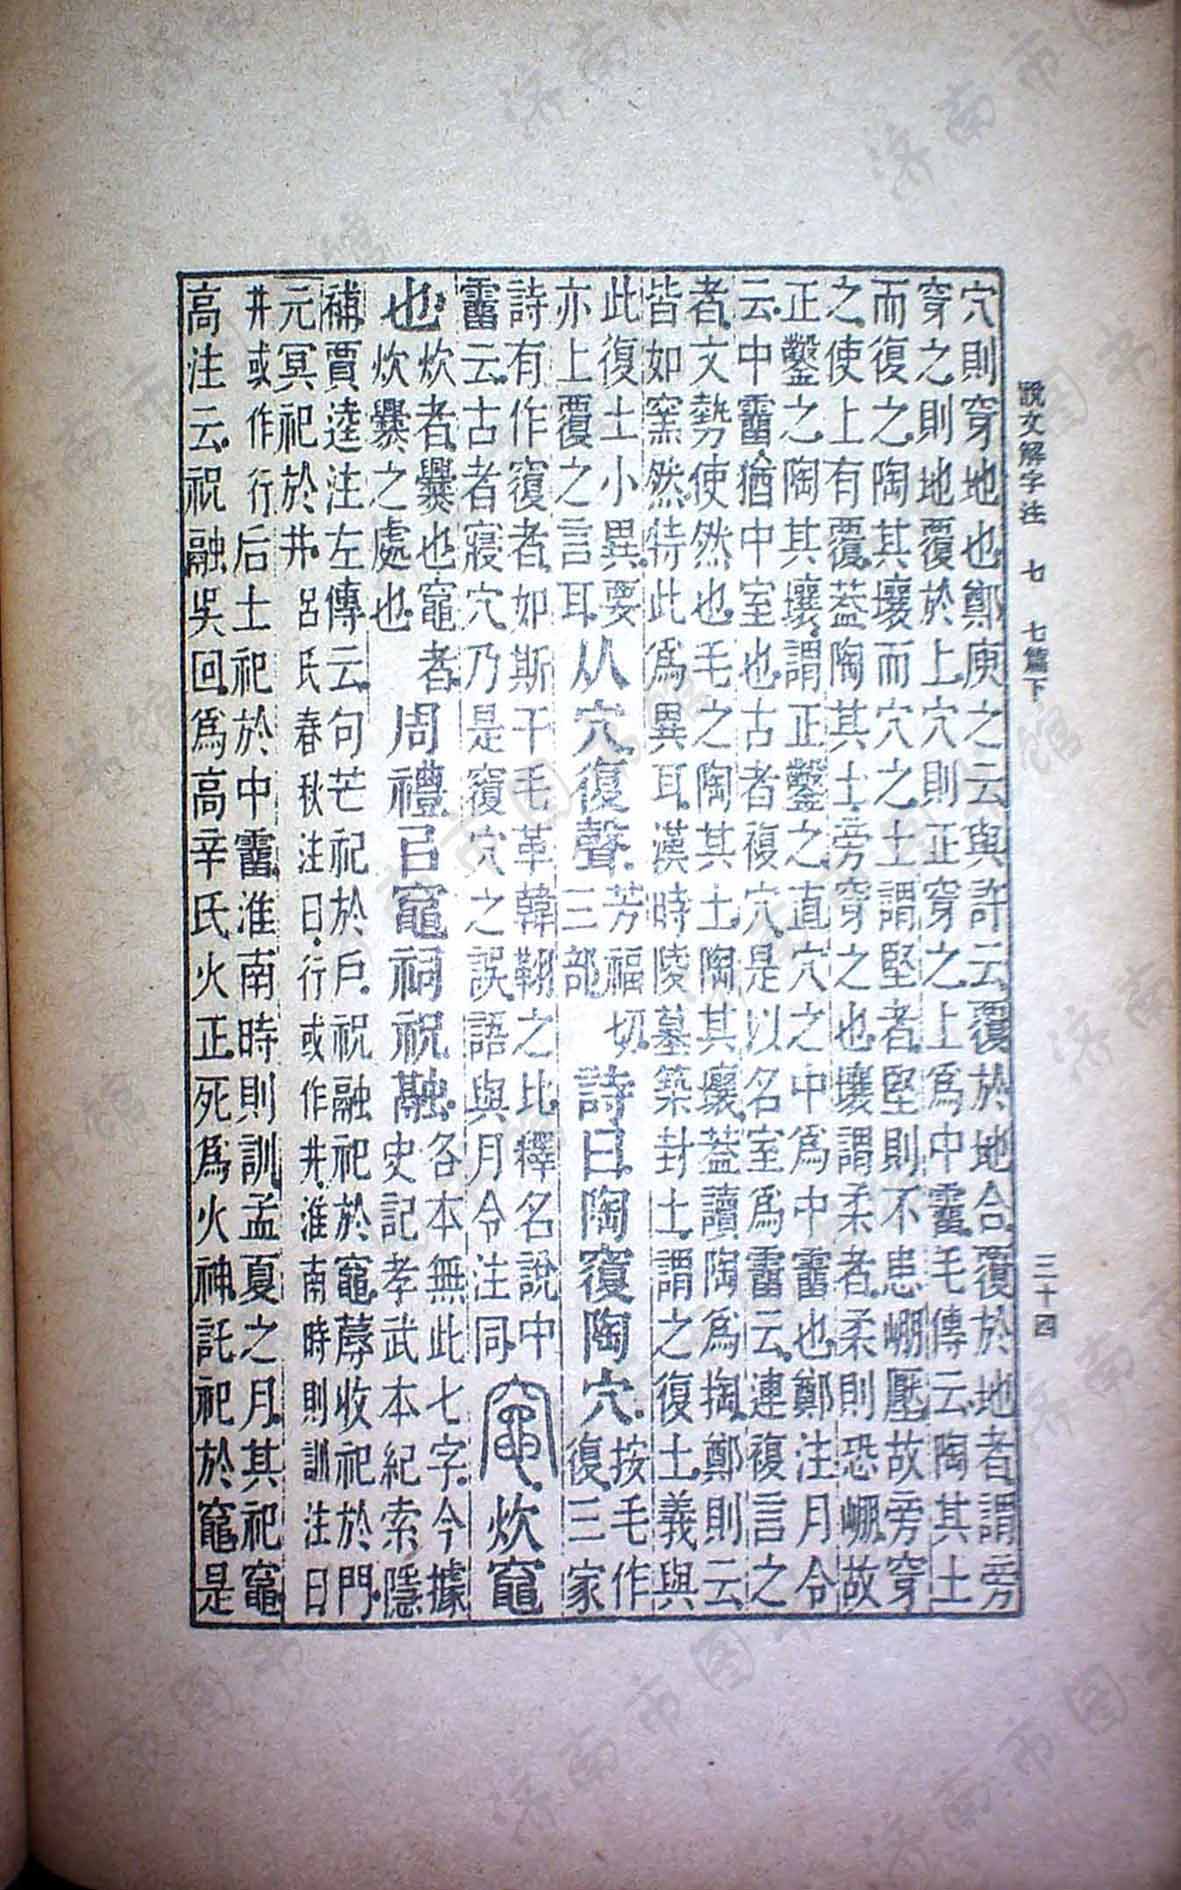 說文解字注 七 七篇下 三十四
穴則穿地也鄭庾之云與許云覆於地合覆於地者謂旁
穿之則地覆於上穴則正穿之上爲中霤毛傳云陶其土
而復之陶其壤而穴之土謂堅者堅則不患崩壓故旁穿
之使上有覆葢陶其土旁穿之也壤謂柔者柔則恐崩故
正鑿之陶其壤謂正鑿之直穴之中爲中霤也鄭注月令
云中霤猶中室也古者複穴是以名室爲霤云連複言之
者文勢使然也毛之陶其土陶其壤葢讀陶爲掏鄭則云
皆如窯然特此爲異耳漢時陵墓築封土謂之復土義與
此復土小異要
亦上覆之言耳
从穴復聲
芳福切
三部
詩曰陶𥨍陶穴
按毛作
復三家
詩有作𥨍者如斯干毛革韓䩹之比釋名說中
霤云古者寢穴乃是𥨍穴之誤語與月令注同
竈炊竈
也
炊者爨也竈者
炊爨之處也
周禮㠯竈祠祝融
各本無此七字今據
史記孝武本紀索隱
補賈逵注左傳云句芒祀於戶祝融祀於竈蓐收祀於門
元冥祀於井呂氏春秋注曰行或作井淮南時則訓注曰
井或作行后土祀於中霤淮南時則訓孟夏之月其祀竈
高注云祝融吳回爲高辛氏火正死爲火神託祀於竈是